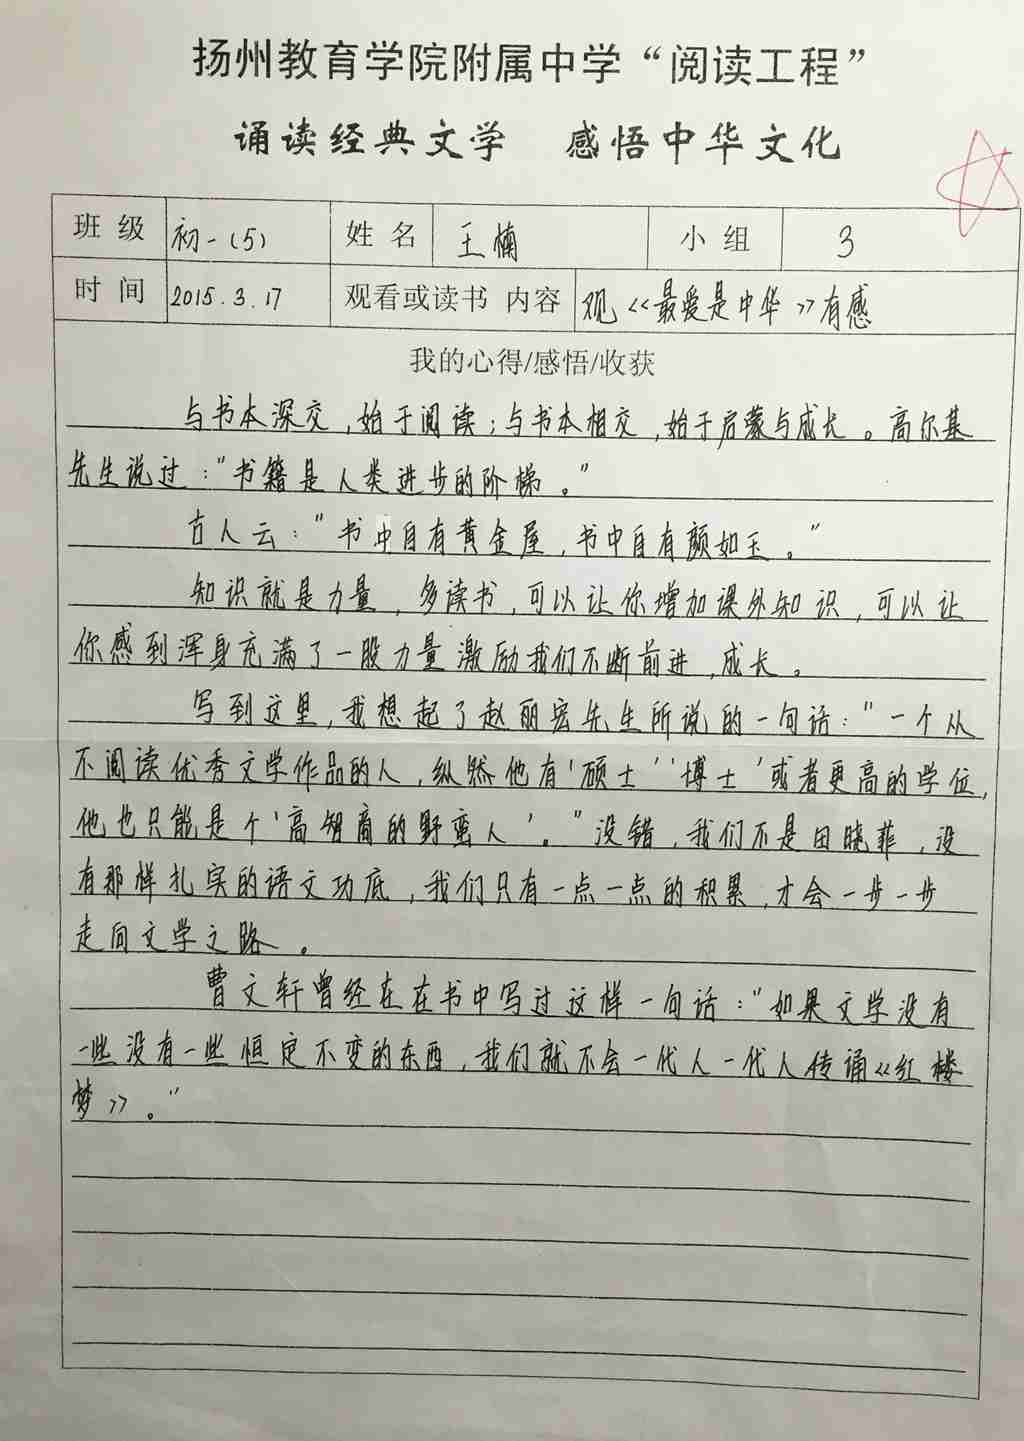 扬州教育学院附属中学“阅读工程”
诵读经典文学 感悟中华文化
班 级 初一(5) 姓 名 王楠 小 组 3
时 间 2015.3.17 观看或读书 内容 观《最爱是中华》有感
我的心得/感悟/收获
与书本深交,始于阅读;与书本相交,始于启蒙与成长。高尔基
先生说过:“书籍是人类进步的阶梯。”
古人云:“书中自有黄金屋,书中自有颜如玉。”
知识就是力量,多读书,可以让你增加课外知识,可以让
你感到浑身充满了一股力量激励我们不断前进,成长。
写到这里,我想起了赵丽宏先生所说的一句话:“一个从
不阅读优秀文学作品的人,纵然他有‘硕士’‘博士’或者更高的学位,
他也只能是个‘高智商的野蛮人’。”没错,我们不是田晓菲,没
有那样扎实的语文功底,我们只有一点一点的积累,才会一步一步
走向文学之路。
曹文轩曾经在在书中写过这样一句话:“如果文学没有
一些没有一些恒定不变的东西,我们就不会一代人一代人传诵《红楼
梦》。”